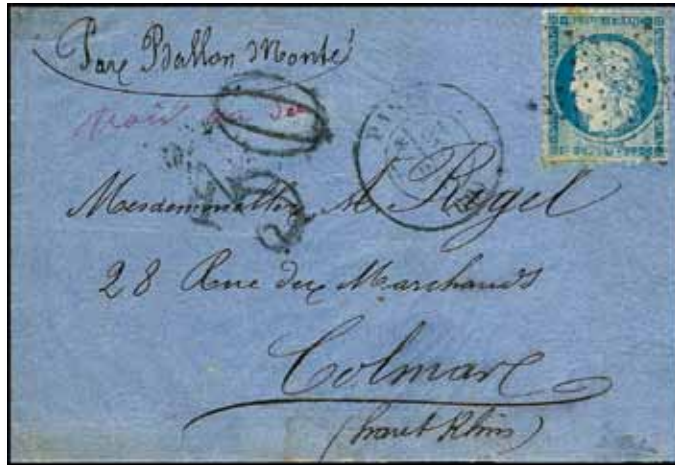 Par Ballon Monté
30
PARIS
Mesdemoiselles M. Rigel
28 Rue des Marchands
Colmar
(haut Rhin)